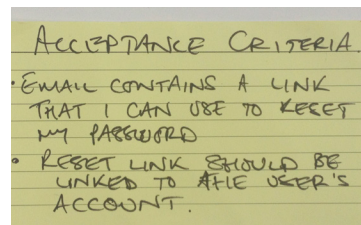 ACCEPTANCE CRITERIA.
• EMAIL CONTAINS A LINK
THAT I CAN USE TO RESET
MY PASSWORD
• RESET LINK SHOULD BE
LINKED TO THE USER'S
ACCOUNT.